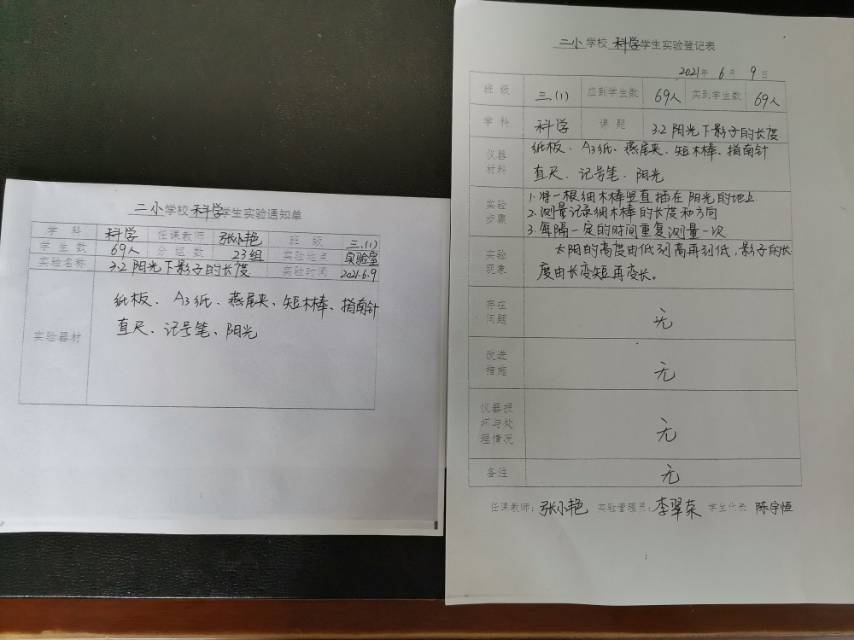 二小学校科学学生实验通知单
学科 科学 任课教师 张小艳 班级 三.(1)
学生数 69人 分组数 23组 实验地点 实验室
实验名称 3.2阳光下影子的长度 实验时间 2021.6.9
实验器材
纸板、A3纸、燕尾夹、短木棒、指南针
直尺、记号笔、阳光
二小学校 科学学生实验登记表
2021年 6月 9日
班级 三.(1) 应到学生数 69人 实到学生数 69人
学科 科学 课题 3.2阳光下影子的长度
仪器材料
纸板、A3纸、燕尾夹、短木棒、指南针
直尺、记号笔、阳光
实验步骤
1.将一根细木棒竖直插在阳光的地上
2.测量记录细木棒的长度和方向
3.每隔一定的时间重复测量一次
实验现象
太阳的高度由低到高再到低,影子的长
度由长变短再变长。
存在问题 无
改进措施 无
仪器损坏与处理情况 无
备注 无
任课教师:张小艳 实验管理员:李翠荣 学生代表 陈宇恒